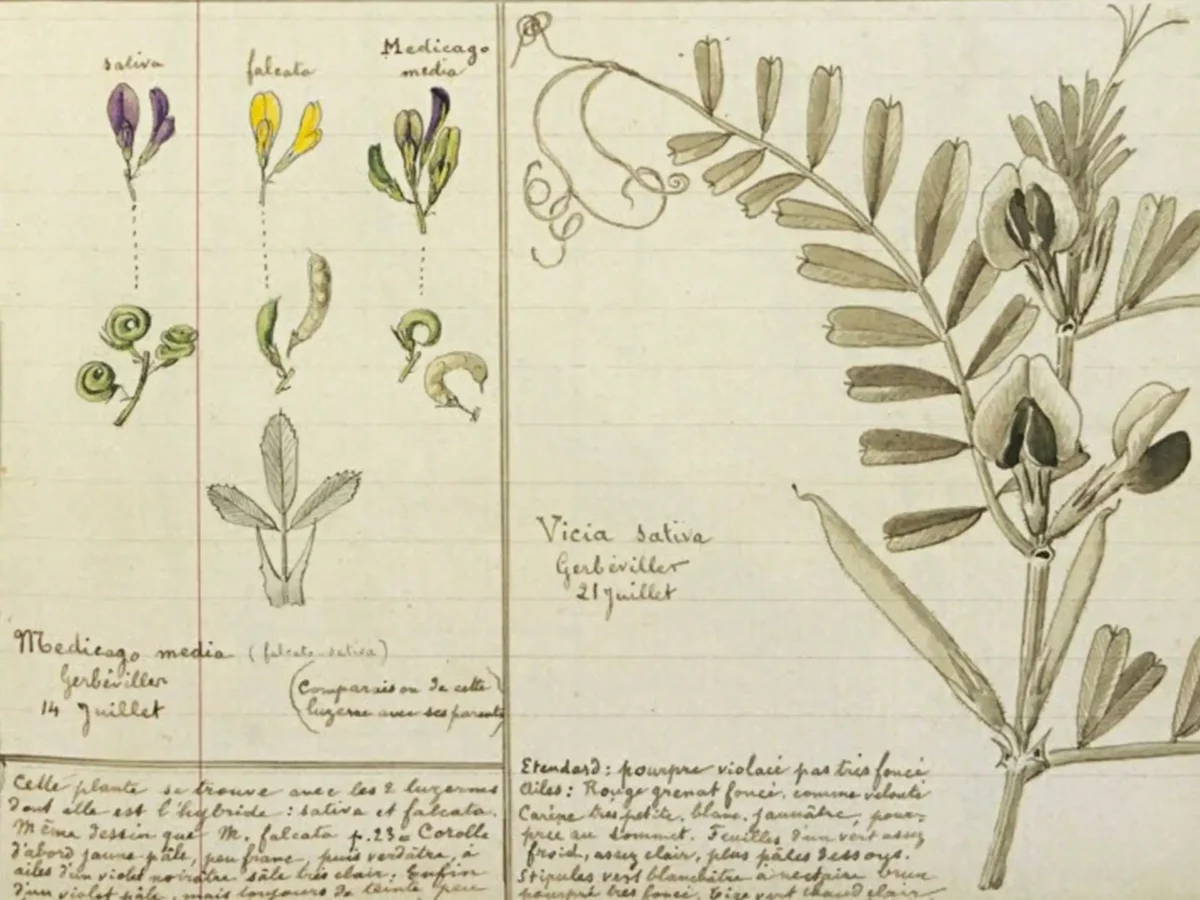 sativa
falcata
Medicago
media
Medicago media (falcata-sativa)
Gerbéviller
14 Juillet
(Comparaison de cette
luzerne avec ses parents)
Cette plante se trouve avec les 2 luzernes
dont elle est l'hybride : sativa et falcata.
Même dessin que M. falcata p.23 = Corolle
d'abord jaune pâle, peu franc, puis verdâtre, à
ailes d'un violet noirâtre sâle très clair. Enfin
d'un violet pâle, mais toujours de teinte peu
Vicia sativa
Gerbéviller
21 Juillet
Etendard : pourpre violacé pas très foncé
Ailes : Rouge grenat foncé, comme velouté
Carène très petite, blanc jaunâtre, pour-
prée au sommet. Feuilles d'un vert assez
froid, assez clair, plus pâles dessous.
Stipules vert blanchâtre à nectaire brun
pourpré très foncé. Tige vert chaud clair